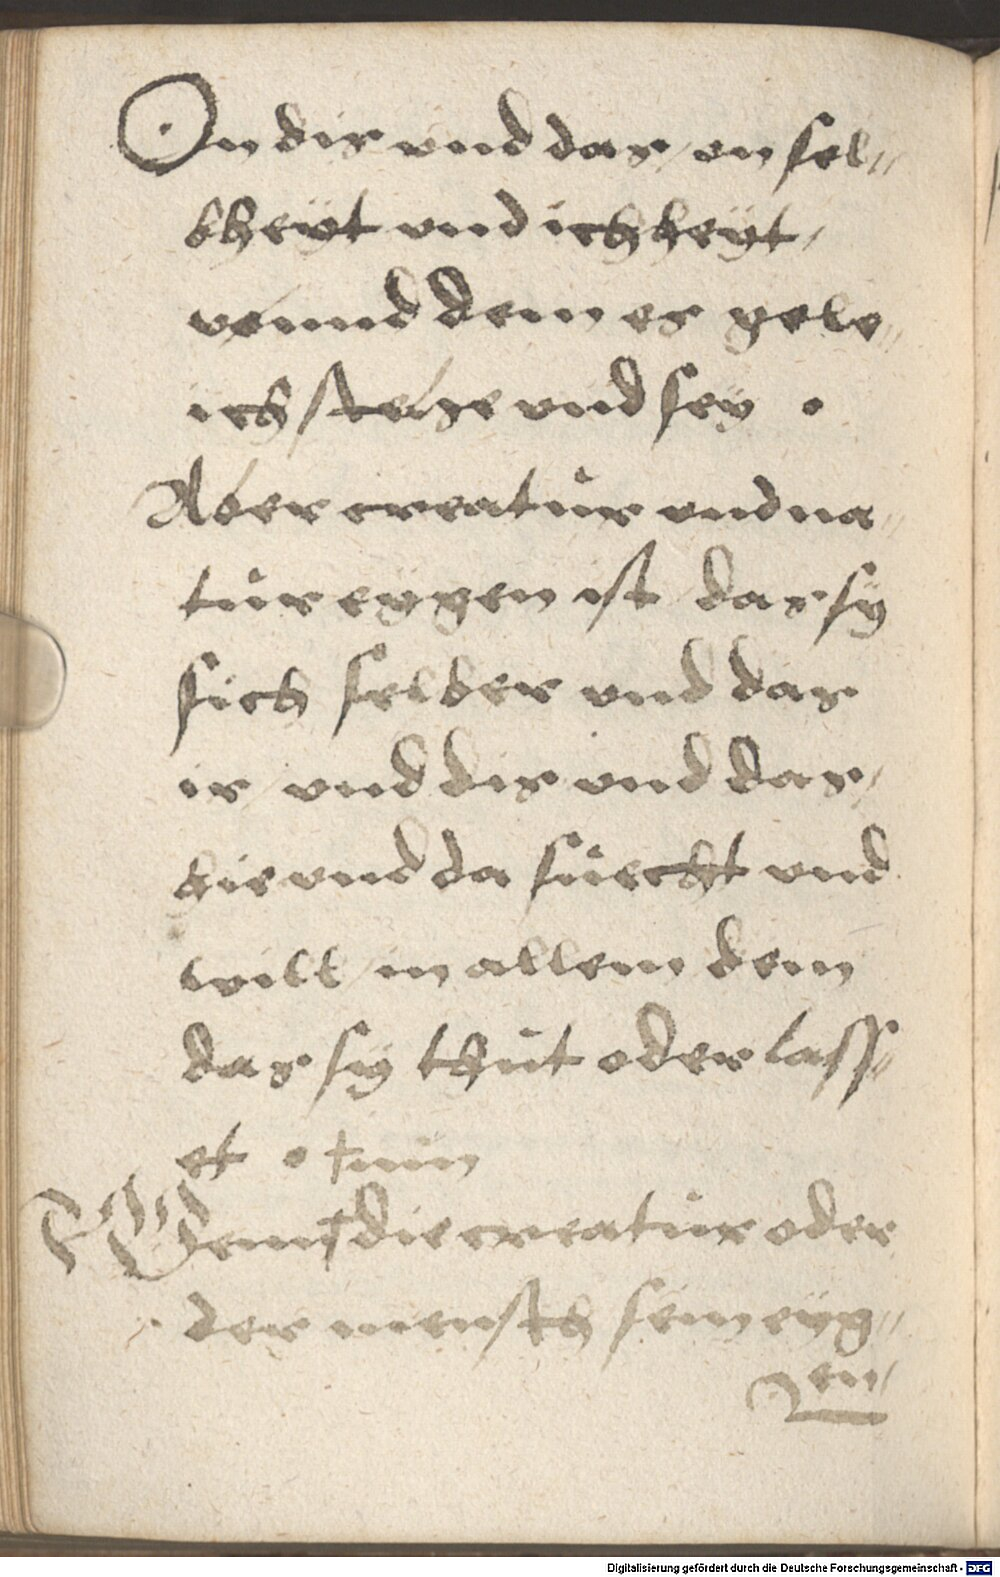 On dis vnd das / on sel〃
bheyt vnd ichheyt /
vnnd dem es gele〃
ich / steige vnd sey •
Aber creatůr vnd na〃
tůr eygen ist das sy
sich selber vnd das
ir / vnd dis vnd das /
hie vnd da sůecht vnd
will / in allem dem
das sy thůt oder lass〃
et • †nun
Wenn† die creatůr oder
der mensch sein eyg〃
en /
Digitalisierung gefördert durch die Deutsche Forschungsgemeinschaft - DFG